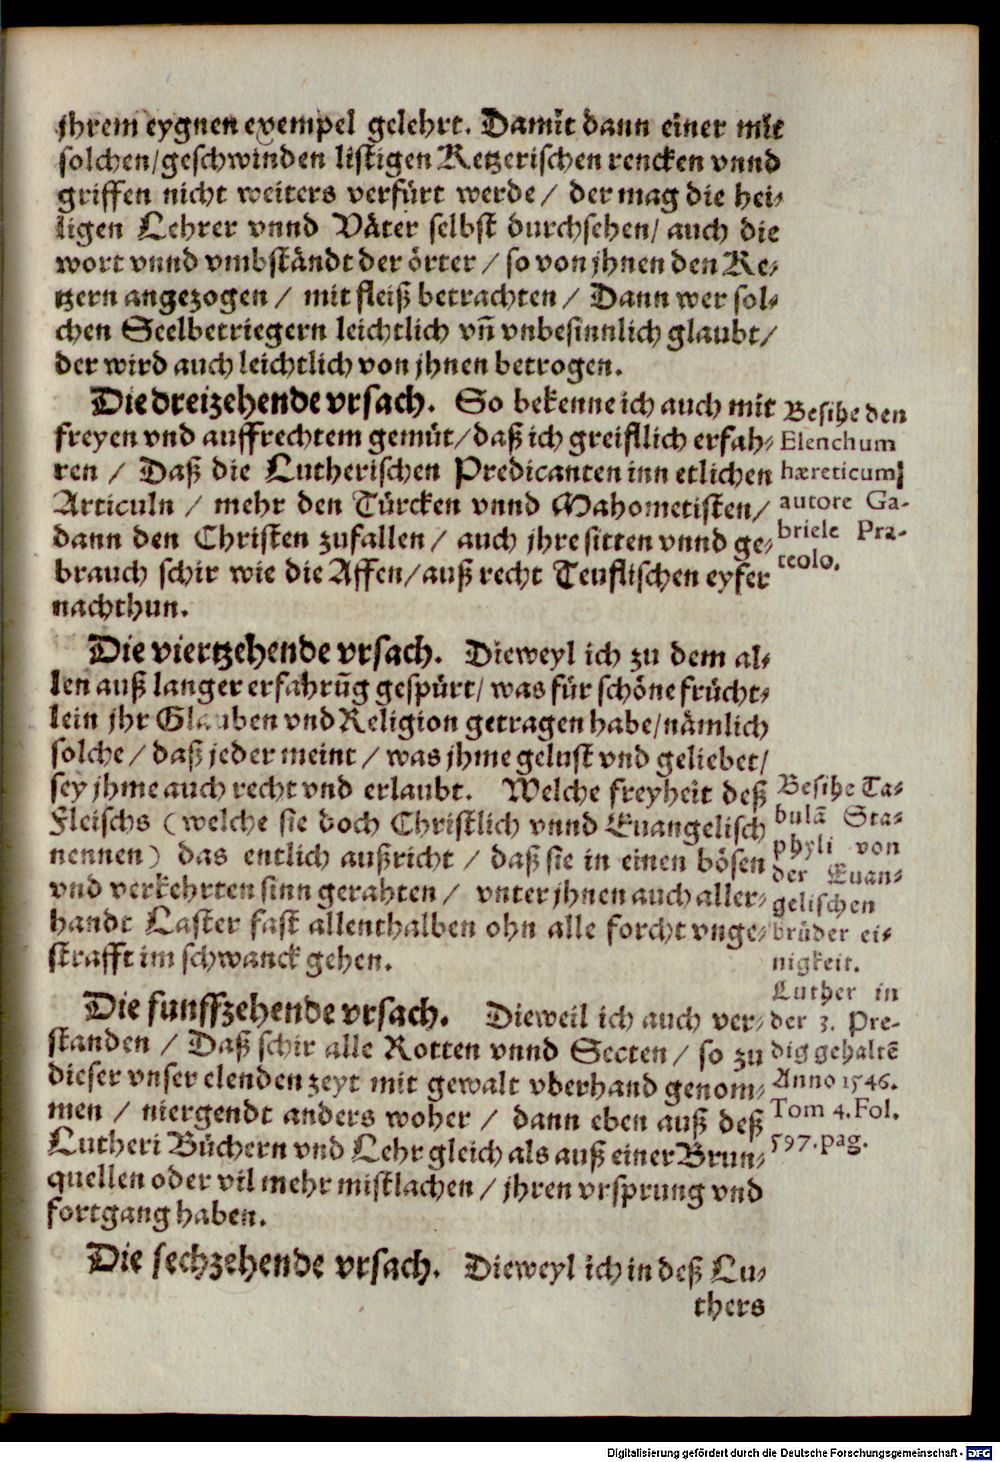 jhrem eygnen exempel gelehrt. Damit dann einer mit
solchen/geschwinden listigen Ketzerischen rencken vnnd
griffen nicht weiters verfürt werde / der mag die hei-
ligen Lehrer vnnd Väter selbst durchsehen/ auch die
wort vnnd vmbständt der örter / so von jhnen den Ke-
tzern angezogen / mit fleiß betrachten / Dann wer sol-
chen Seelbetriegern leichtlich vñ vnbesinnlich glaubt/
der wird auch leichtlich von jhnen betrogen.
Die dreizehende vrsach. So bekenne ich auch mit
freyen vnd auffrechtem gemüt/daß ich greifflich erfah-
ren / Daß die Lutherischen Predicanten inn etlichen
Articuln / mehr den Türcken vnnd Mahometisten/
dann den Christen zufallen/ auch jhre sitten vnnd ge-
brauch schir wie die Affen/auß recht Teuflischen eyfer
nachthun.
Besihe den
Elenchum
hæreticum
autore Ga-
briele Pra-
teolo.
Die viertzehende vrsach. Dieweyl ich zu dem al-
len auß langer erfahrũg gespürt/ was für schöne frücht-
lein jhr Glauben vnd Religion getragen habe/nämlich
solche / daß jeder meint / was jhme gelust vnd geliebet/
sey jhme auch recht vnd erlaubt. Welche freyheit deß
Fleischs (welche sie doch Christlich vnnd Euangelisch
nennen) das entlich außricht / daß sie in einen bösen
vnd verkehrten sinn gerahten / vnter jhnen auch aller-
handt Laster fast allenthalben ohn alle forcht vnge-
strafft im schwanck gehen.
Besihe Ta-
bulã Sta-
phyli von
der Euan-
gelischen
brüder ei-
nigkeit.
Die funffzehende vrsach. Dieweil ich auch ver-
standen / Daß schir alle Rotten vnnd Secten / so zu
dieser vnser elenden zeyt mit gewalt vberhand genom-
men / niergendt anders woher / dann eben auß deß
Lutheri Büchern vnd Lehr gleich als auß einer Brun-
quellen oder vil mehr mistlachen / jhren vrsprung vnd
fortgang haben.
Luther in
der 3. Pre-
dig gehaltẽ
Anno 1546.
Tom 4. Fol.
597. pag.
Die sechzehende vrsach. Dieweyl ich in deß Lu-
thers
Digitalisierung gefördert durch die Deutsche Forschungsgemeinschaft - DFG